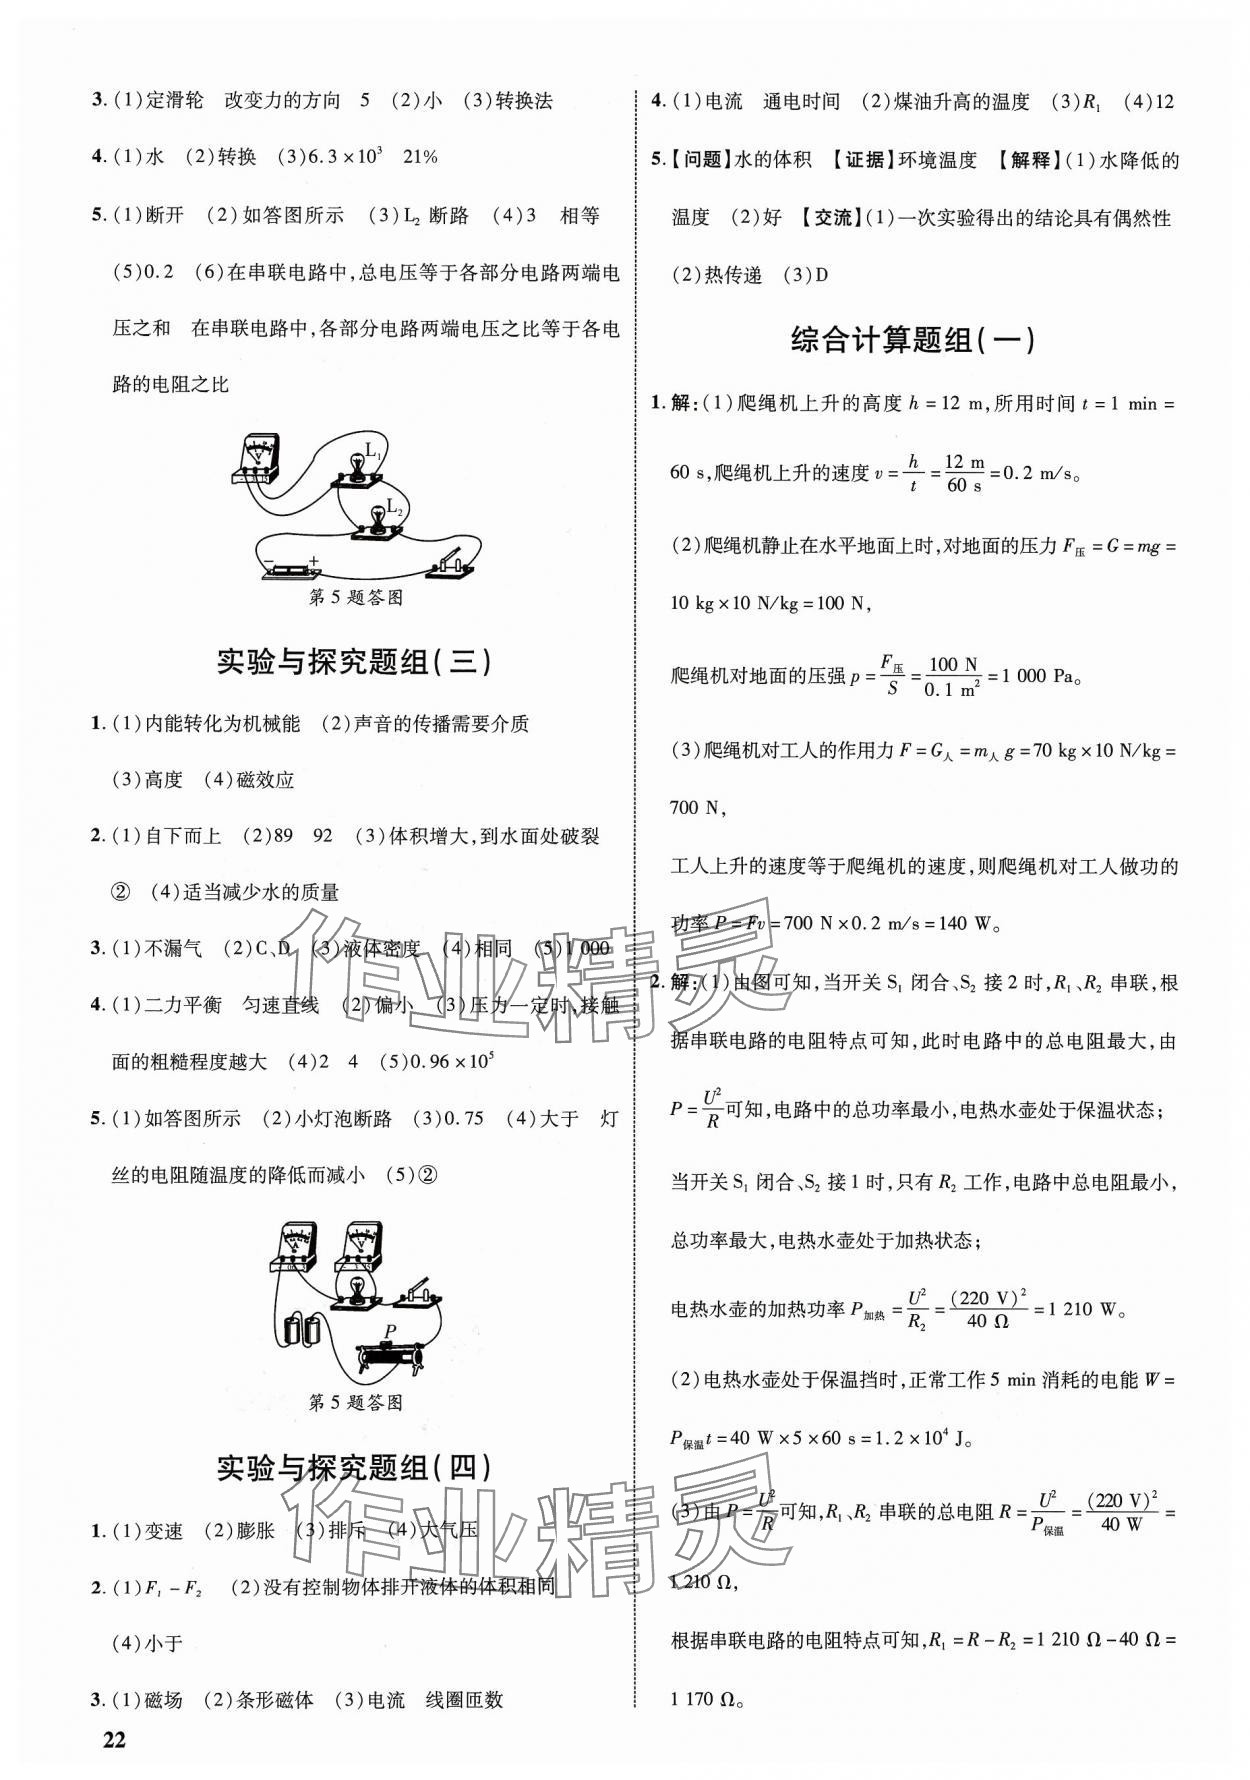 3.(1)定滑轮 改变力的方向 5 (2)小 (3)转换法
4.(1)水 (2)转换 (3)6.3×10³ 21%
5.(1)断开 (2)如答图所示 (3)L₂ 断路 (4)3 相等
(5)0.2 (6)在串联电路中,总电压等于各部分电路两端电
压之和 在串联电路中,各部分电路两端电压之比等于各电
路的电阻之比
L₁
L₂
- +
第5题答图
实验与探究题组(三)
1.(1)内能转化为机械能 (2)声音的传播需要介质
(3)高度 (4)磁效应
2.(1)自下而上 (2)89 92 (3)体积增大,到水面处破裂
② (4)适当减少水的质量
3.(1)不漏气 (2)C、D (3)液体密度 (4)相同 (5)1 000
4.(1)二力平衡 匀速直线 (2)偏小 (3)压力一定时,接触
面的粗糙程度越大 (4)2 4 (5)0.96×10⁵
5.(1)如答图所示 (2)小灯泡断路 (3)0.75 (4)大于 灯
丝的电阻随温度的降低而减小 (5)②
A V
P
第5题答图
实验与探究题组(四)
1.(1)变速 (2)膨胀 (3)排斥 (4)大气压
2.(1)F₁-F₂ (2)没有控制物体排开液体的体积相同
(4)小于
3.(1)磁场 (2)条形磁体 (3)电流 线圈匝数
22
4.(1)电流 通电时间 (2)煤油升高的温度 (3)R₁ (4)12
5.【问题】水的体积 【证据】环境温度 【解释】(1)水降低的
温度 (2)好 【交流】(1)一次实验得出的结论具有偶然性
(2)热传递 (3)D
综合计算题组(一)
1.解:(1)爬绳机上升的高度 h=12 m,所用时间 t=1 min=
60 s,爬绳机上升的速度 v=h/t=12 m/60 s=0.2 m/s。
(2)爬绳机静止在水平地面上时,对地面的压力 F压=G=mg=
10 kg×10 N/kg=100 N,
爬绳机对地面的压强 p=F压/S=100 N/0.1 m²=1 000 Pa。
(3)爬绳机对工人的作用力 F=G人=m人g=70 kg×10 N/kg=
700 N,
工人上升的速度等于爬绳机的速度,则爬绳机对工人做功的
功率 P=Fv=700 N×0.2 m/s=140 W。
2.解:(1)由图可知,当开关 S₁ 闭合、S₂ 接2时,R₁、R₂ 串联,根
据串联电路的电阻特点可知,此时电路中的总电阻最大,由
P=U²/R可知,电路中的总功率最小,电热水壶处于保温状态;
当开关 S₁ 闭合、S₂ 接1时,只有 R₂ 工作,电路中总电阻最小,
总功率最大,电热水壶处于加热状态;
电热水壶的加热功率 P加热=U²/R₂=(220 V)²/40 Ω=1 210 W。
(2)电热水壶处于保温挡时,正常工作5 min消耗的电能 W=
P保温t=40 W×5×60 s=1.2×10⁴ J。
(3)由 P=U²/R可知,R₁、R₂ 串联的总电阻 R=U²/P保温=(220 V)²/40 W=
1 210 Ω,
根据串联电路的电阻特点可知,R₁=R-R₂=1 210 Ω-40 Ω=
1 170 Ω。
作业精灵
作业精灵